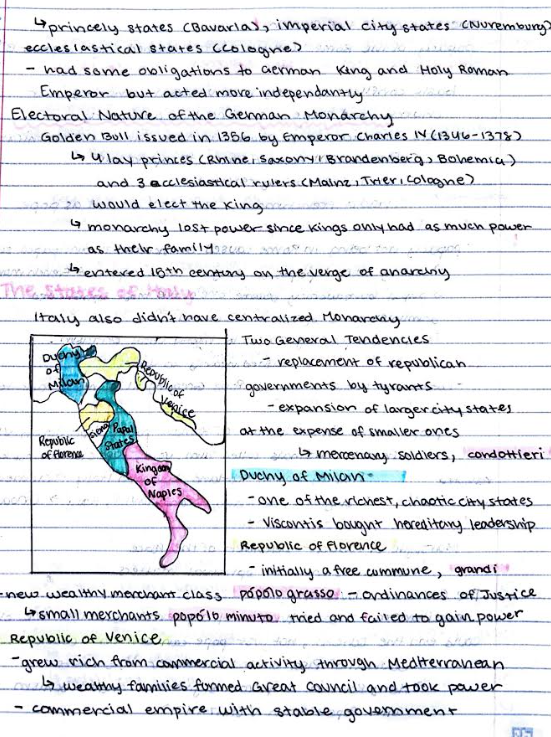 ↳princely states (Bavaria), imperial city states (Nuremburg)
ecclesiastical states (Cologne)
- had some obligations to German King and Holy Roman
Emperor but acted more independantly
Electoral Nature of the German Monarchy
Golden Bull issued in 1356 by Emperor Charles IV (1346-1378)
↳ 4 lay princes (Rhine, Saxony, Brandenberg, Bohemia)
and 3 ecclesiastical rulers (Mainz, Trier, Cologne)
would elect the king
↳ monarchy lost power since kings only had as much power
as their family
↳ entered 15th century on the verge of anarchy
The States of Italy
Italy also didn't have centralized Monarchy
Duchy
of
Milan
Republic of
Venice
Republic
of Florence
Siena
Papal
States
Kingdom
of
Naples
Two General Tendencies
- replacement of republican
governments by tyrants
- expansion of larger city states
at the expense of smaller ones
↳ mercenary soldiers, condottieri
Duchy of Milan
- one of the richest, chaotic city states
- Viscontis bought hereditary leadership
Republic of Florence
- initially a free commune, grandi
-new wealthy merchant class pópólo grasso - Ordinances of Justice
↳small merchants popólo minuto tried and failed to gain power
Republic of Venice
-grew rich from commercial activity through Mediterranean
↳ wealthy families formed Great Council and took power
- commercial empire with stable government